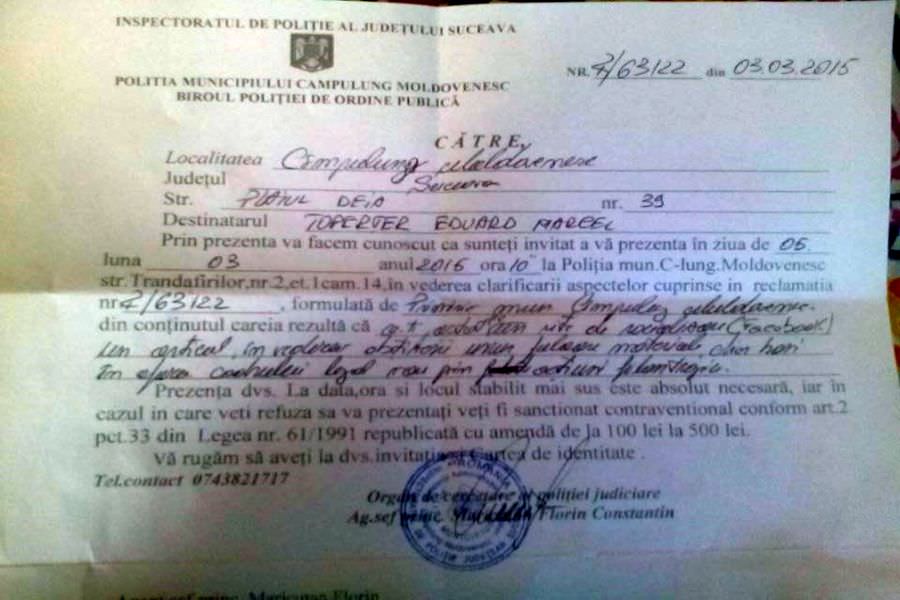 INSPECTORATUL DE POLIȚIE AL JUDEȚULUI SUCEAVA
NR. 2/63122 din 03.03.2015
POLITIA MUNICIPIULUI CAMPULUNG MOLDOVENESC
BIROUL POLIȚIEI DE ORDINE PUBLICĂ
CĂTRE,
Localitatea Câmpulung Moldovenesc
Județul Suceava
Str. PLAIUL DEIA nr. 39
Destinatarul TOPERTER EDUARD MARCEL
Prin prezenta va facem cunoscut ca sunteți invitat a vă prezenta în ziua de 05.
luna 03 anul 2015 ora 10 la Poliția mun.C-lung.Moldovenesc
str.Trandafirilor,nr.2,et.1cam.14,în vederea clarificarii aspectelor cuprinse in reclamatia
nr 2/63122, formulată de Primăria mun Câmpulung Moldovenesc
din conținutul careia rezultă că ați postat pe de socializare (Facebook)
un articol, în vederea obținerii unui folos material,
în afara cadrului legal sau prin acțiuni
Prezența dvs. La data,ora si locul stabilit mai sus este absolut necesară, iar în
cazul in care veti refuza sa va prezentați veți fi sanctionat contraventional conform art.2
pct.33 din Legea nr. 61/1991 republicată cu amendă de la 100 lei la 500 lei.
Vă rugăm să aveți la dvs.invitația și Cartea de identitate .
Tel.contact 0743821717
Organ de cercetare al politiei judiciare
Ag.sef princ. Florin Constantin
ROMANIA
Agent sef princ. Maricutan Florin